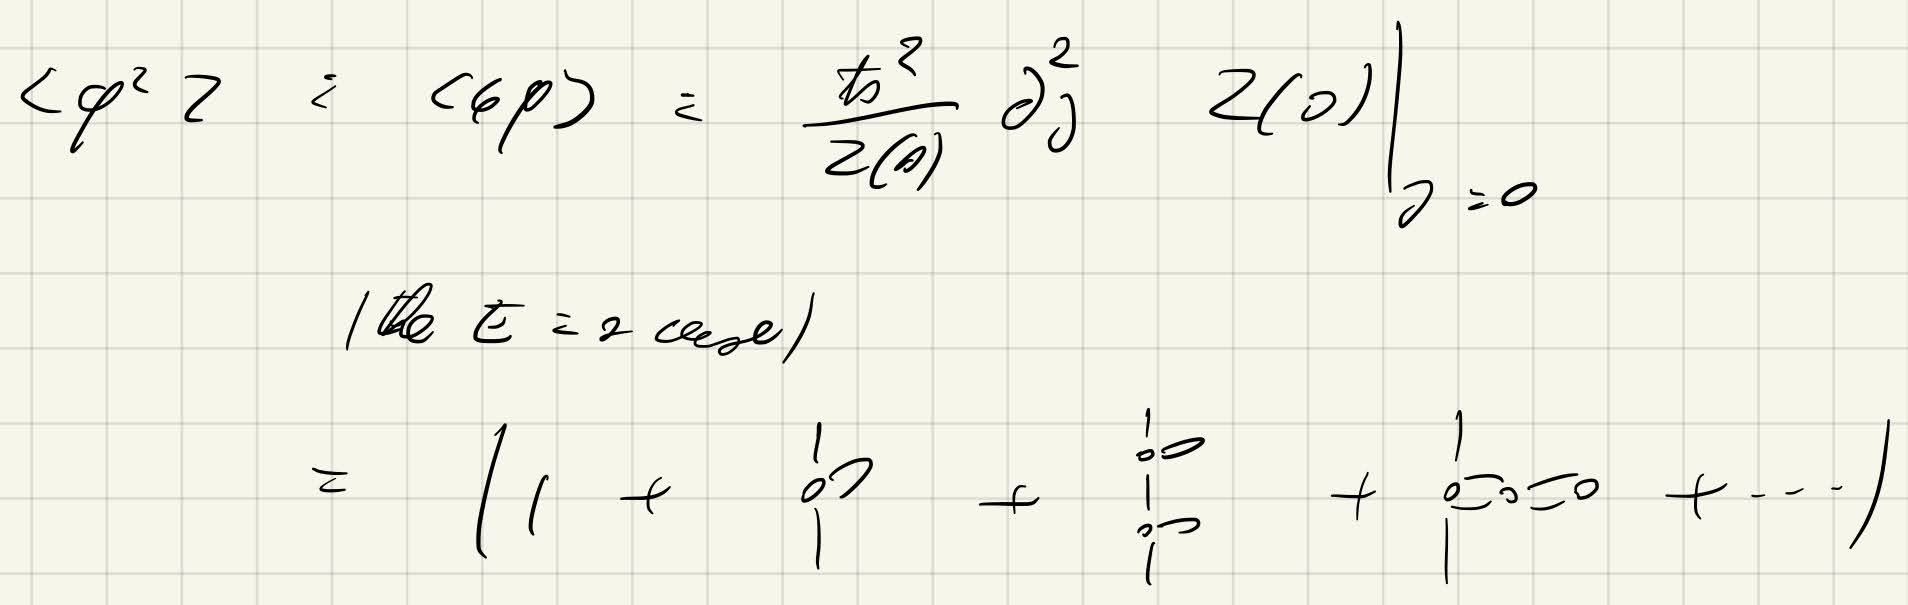 <φ²> = <φφ> = ℏ²/Z(0) ∂_J² Z(J)|_{J=0}
(the E = 2 case)
= ( | + + + + ⋯ )